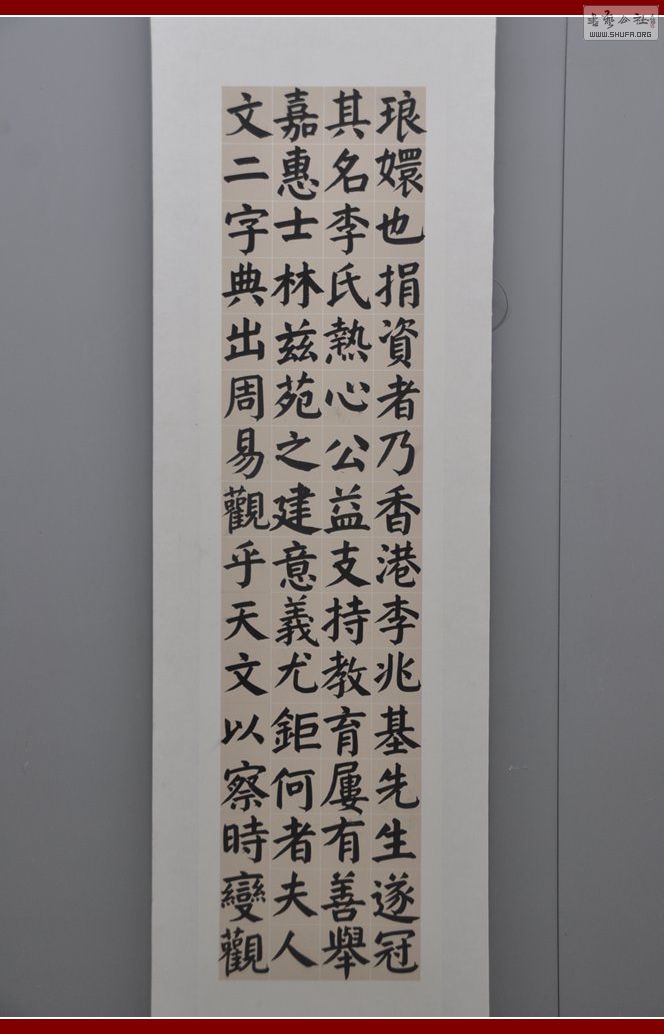 琅嬛也捐資者乃香港李兆基先生遂冠
其名李氏熱心公益支持教育屢有善舉
嘉惠士林茲苑之建意義尤鉅何者夫人
文二字典出周易觀乎天文以察時變觀
書藝公社
WWW.SHUFA.ORG